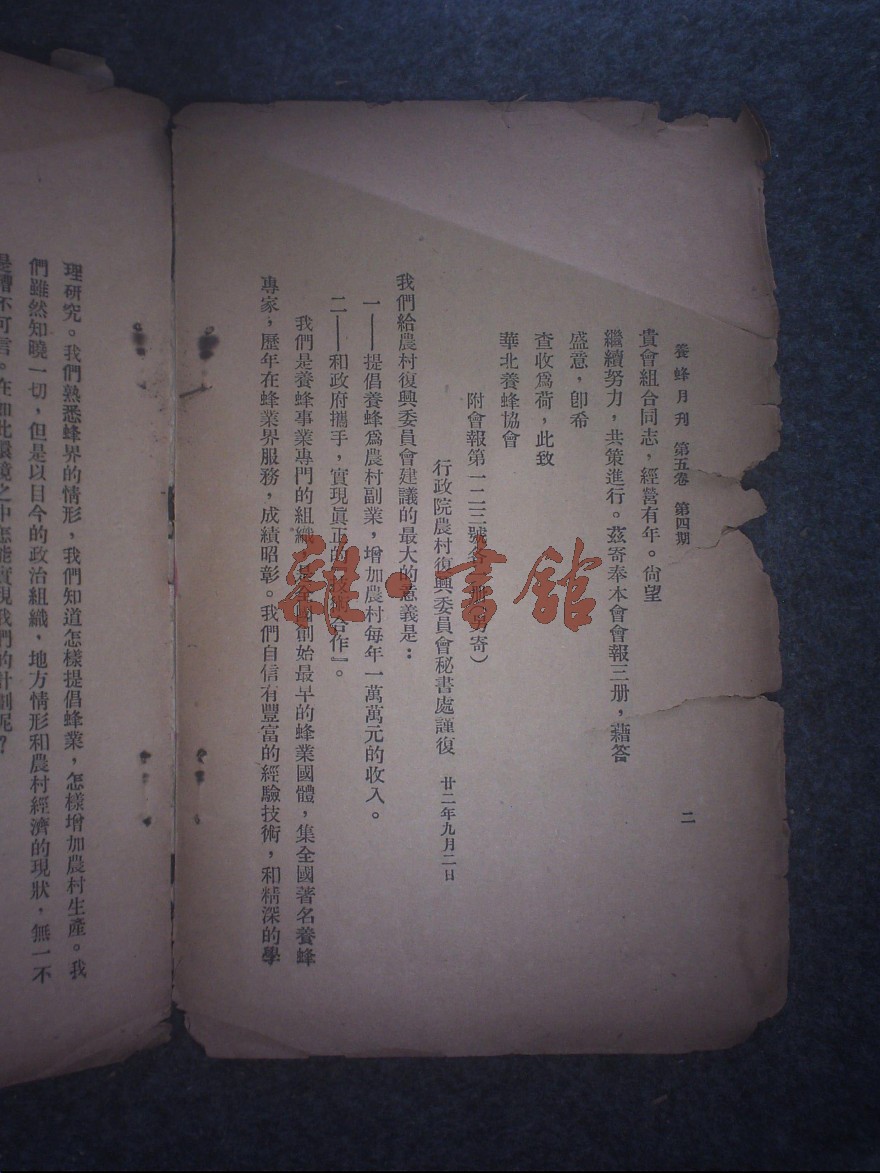 養蜂月刊 第五卷 第四期
二
貴會組合同志，經營有年。尙望
繼續努力，共策進行。茲寄奉本會會報三册，藉答
盛意，卽希
查收爲荷，此致
華北養蜂協會
附會報第一二三號各一册另寄）
行政院農村復興委員會秘書處謹復 廿二年九月二日
我們給農村復興委員會建議的最大的意義是：
一——提倡養蜂爲農村副業，增加農村每年一萬萬元的收入。
二——和政府攜手，實現眞正的『技術合作』。
我們是養蜂事業專門的組織，是全國創始最早的蜂業團體，集全國著名養蜂
專家，歷年在蜂業界服務，成績昭彰。我們自信有豐富的經驗技術，和精深的學
理研究。我們熟悉蜂界的情形，我們知道怎樣提倡蜂業，怎樣增加農村生產。我
們雖然知曉一切，但是以目今的政治組織，地方情形和農村經濟的現狀，無一不
是糟不可言。在如此環境之中怎能實現我們的計劃呢？
雜·書館